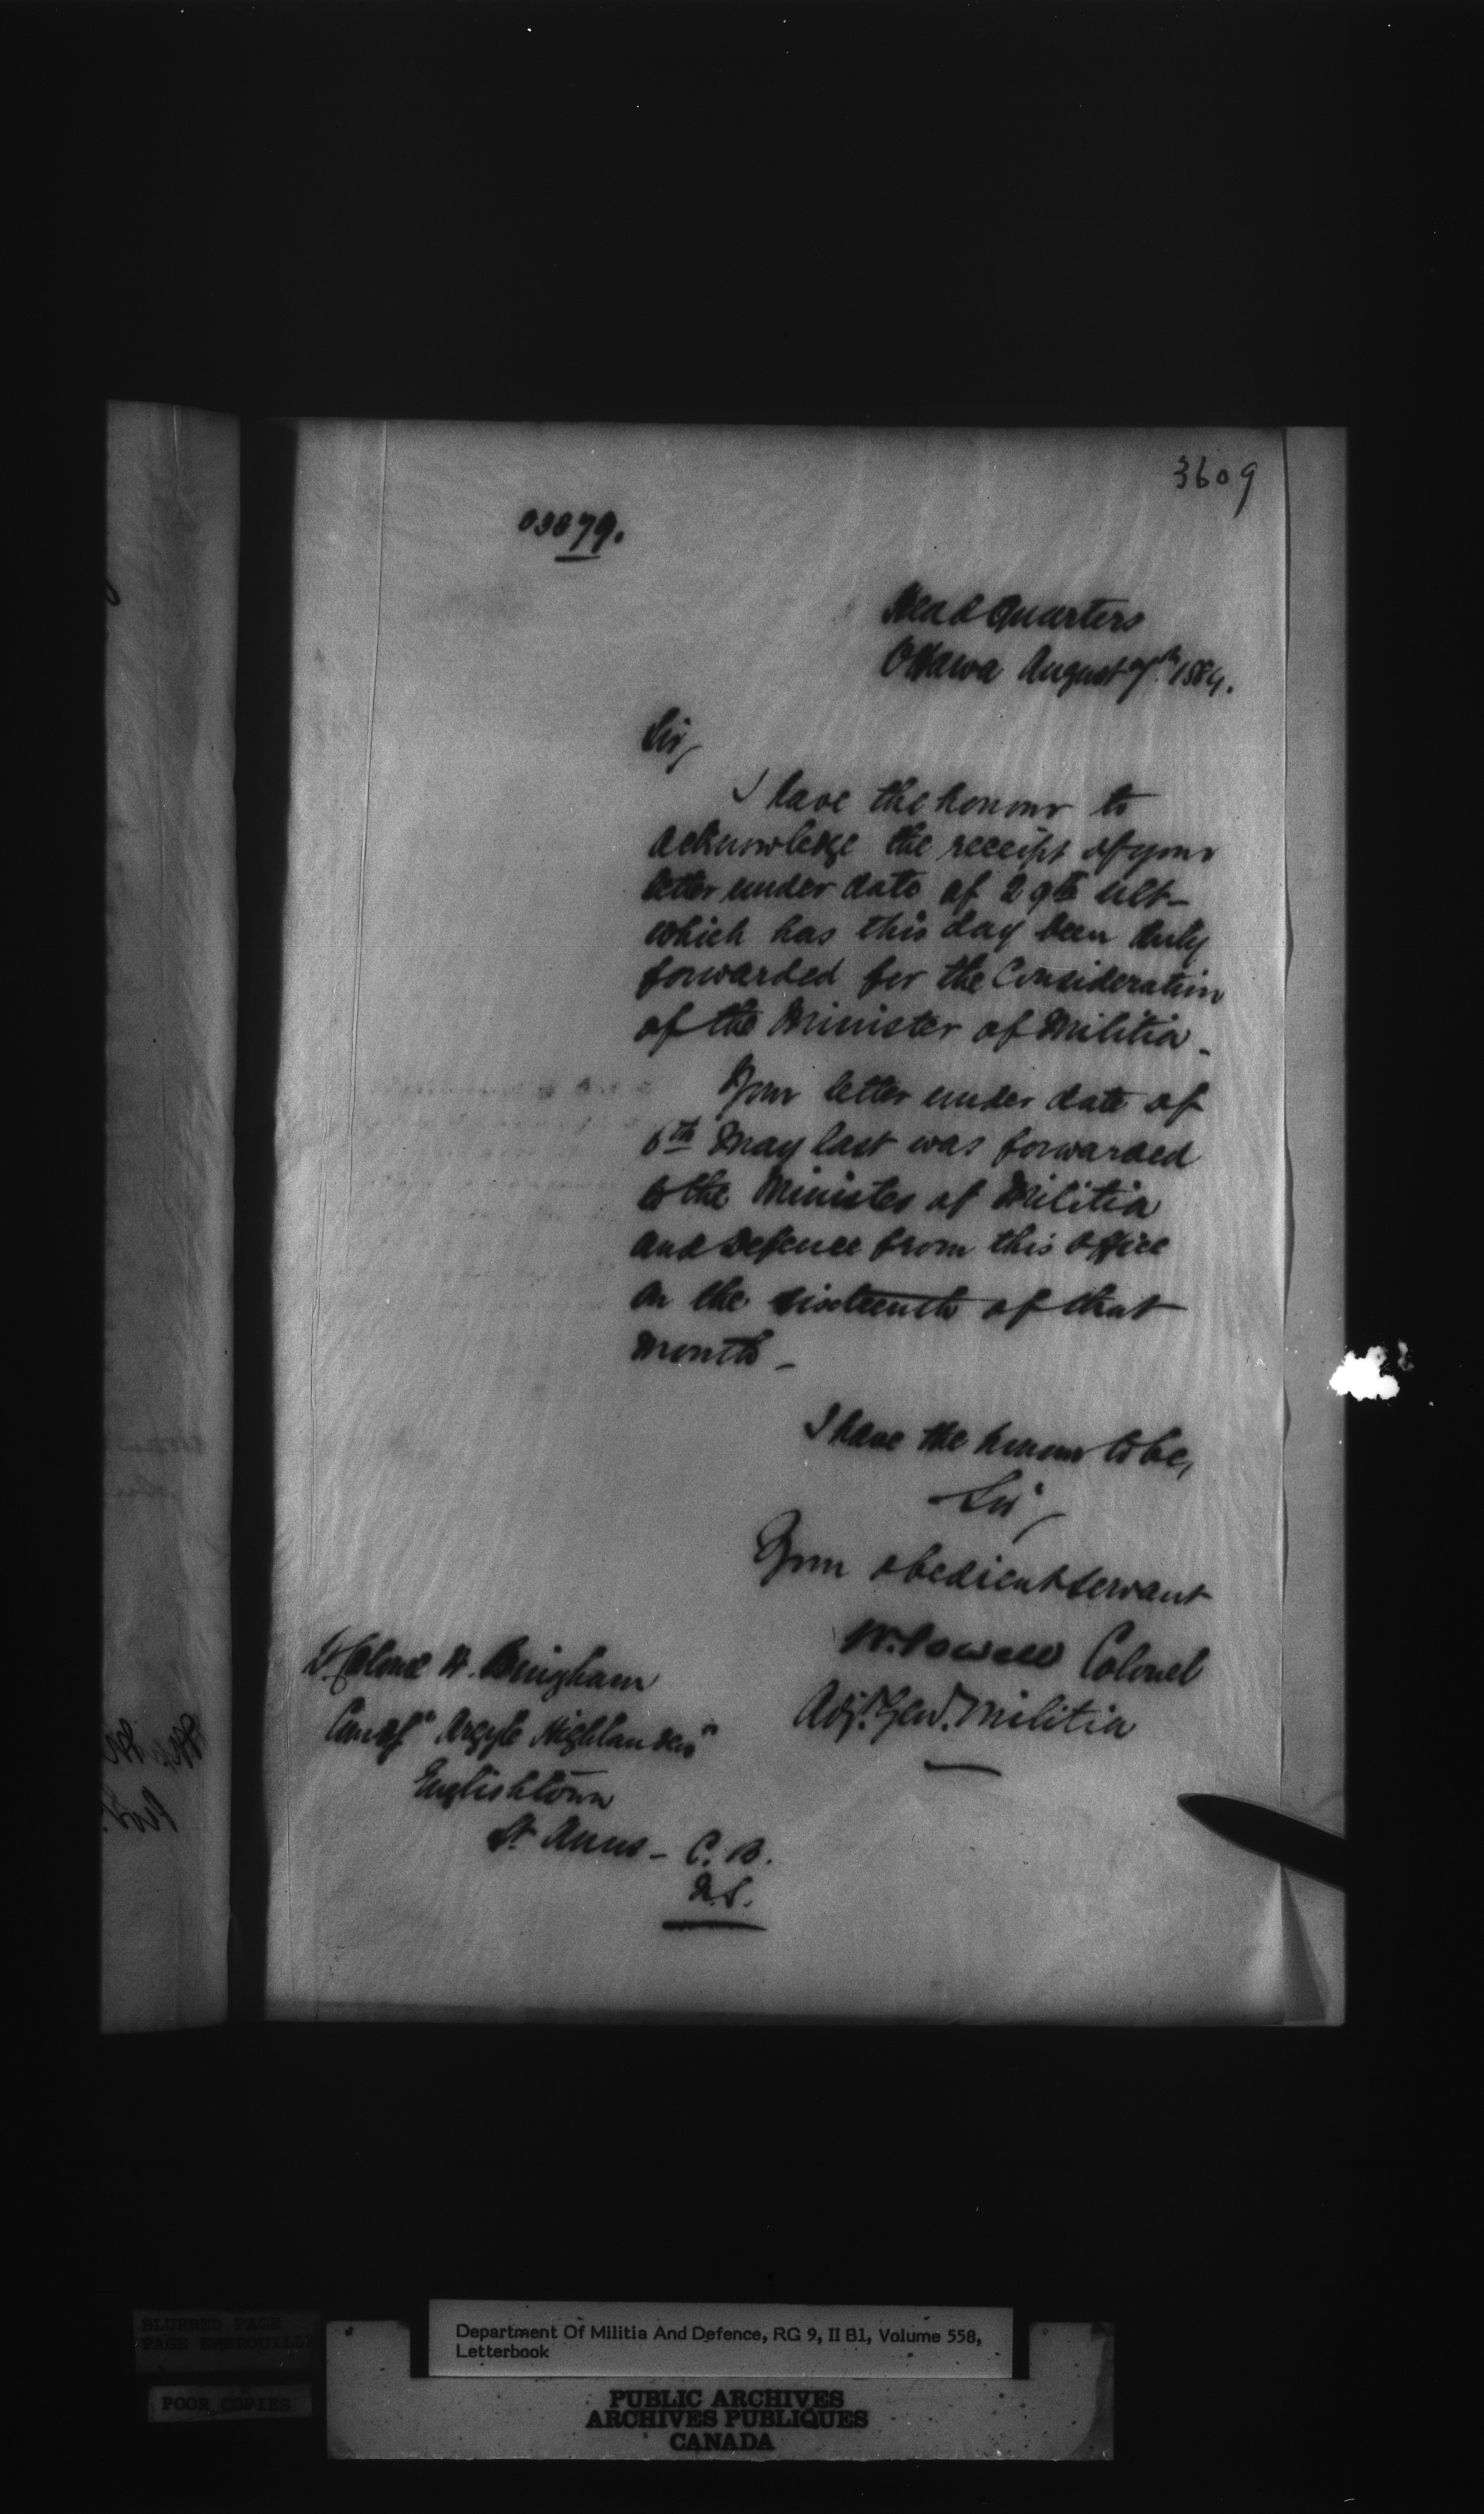 3609
03879.
Head Quarters
Ottawa August 7th 1884.
Sir,
I have the honour to
acknowledge the receipt of your
letter under date of 29th ult -
which has this day been duly
forwarded for the Consideration
of the Minister of Militia -
Your letter under date of
6th May last was forwarded
to the Minister of Militia
and Defence from this office
on the sixteenth of that
month -
I have the honour to be,
Sir,
Your obedient servant
W. Powell Colonel
Adjt. Genl. Militia
Lt Colonel H. Bingham
Comdg "Argyle Highlanders"
Englishtown
St Anns - C. B.
N.S.
BLURRED PAGE
PAGE EMBROUILL
POOR COPIES
Department Of Militia And Defence, RG 9, II B1, Volume 558,
Letterbook
PUBLIC ARCHIVES
ARCHIVES PUBLIQUES
CANADA